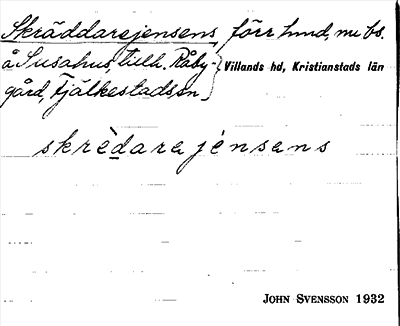 Skräddarejensens, förr hmd, nu bs.
å Susahus, tillh. Råby-
gård, Fjälkestads sn.
Villands hd, Kristianstads län
skrèdarejénsens
JOHN SVENSSON 1932